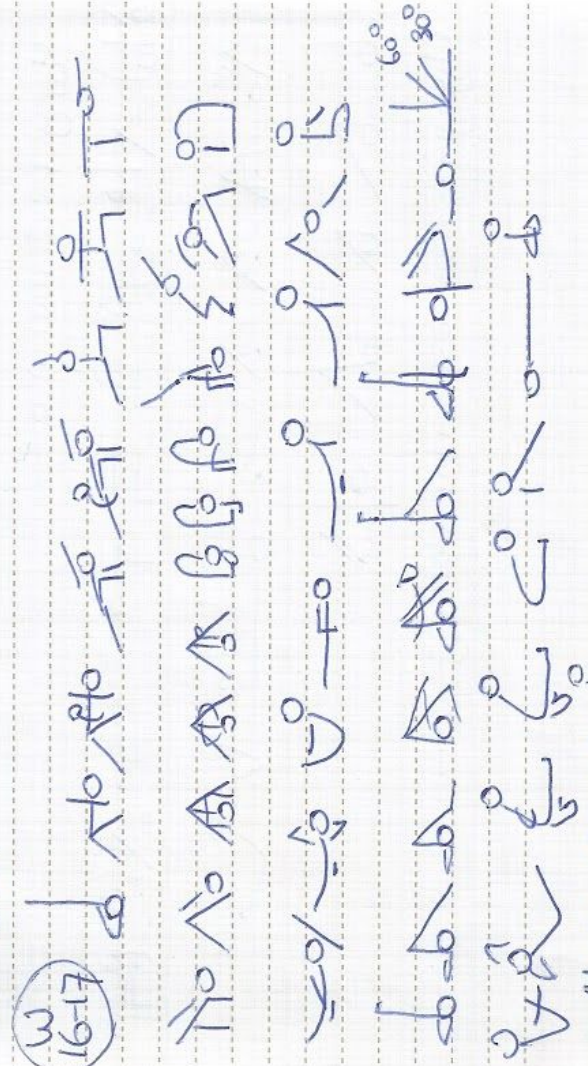 M
16-17
60°
30°